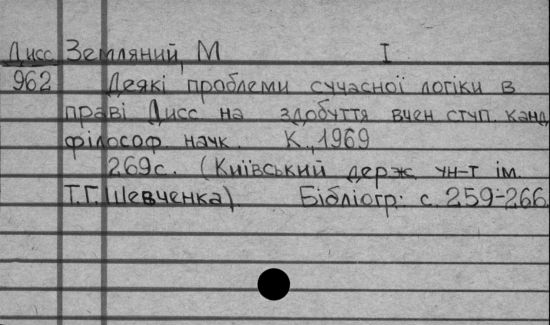 Дисс Земляний, М I
962 Деякі проблеми сучасної логіки в
праві Дисс на здобуття вчен ступ. канд,
філософ. наук. К., 1969
269с. (Київський держ. ун-т ім.
Т.Г. Шевченка). Бібліогр: с. 259-266.